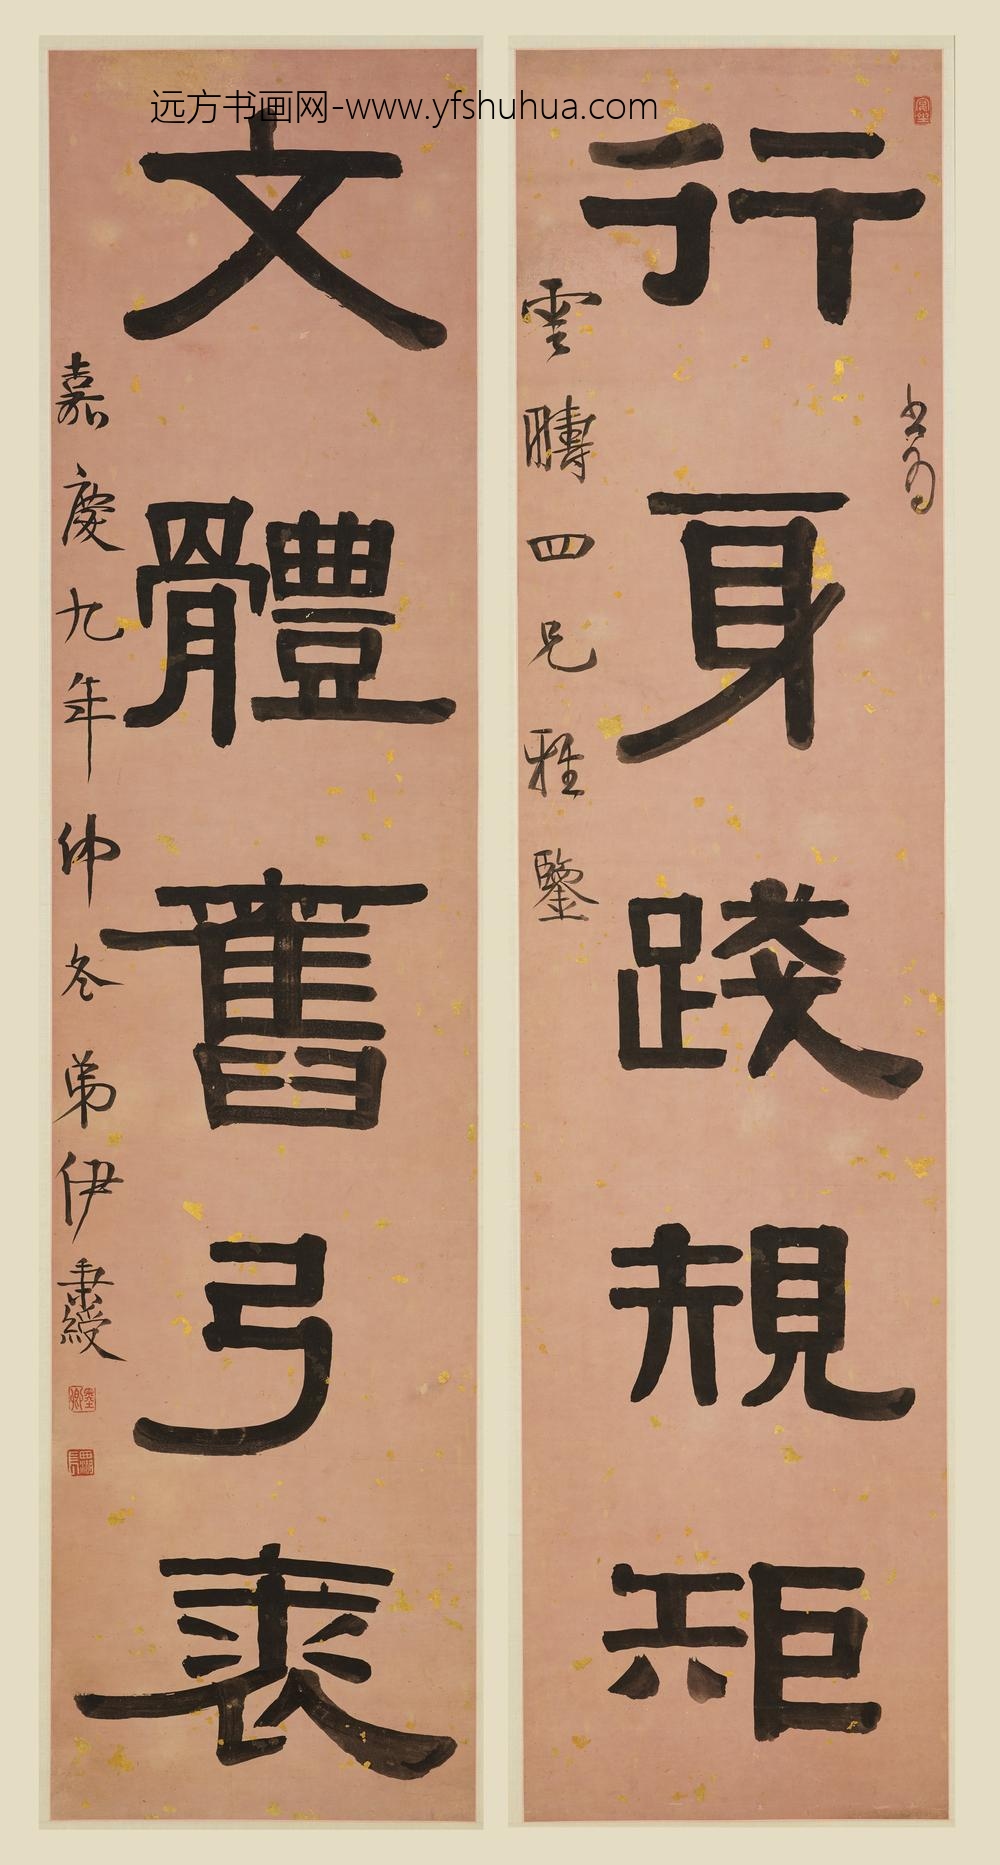 远方书画网-www.yfshuhua.com
行身踐規矩
書為
雲疇四兄雅鑒
文體舊弓裘
嘉慶九年仲冬弟伊秉綬